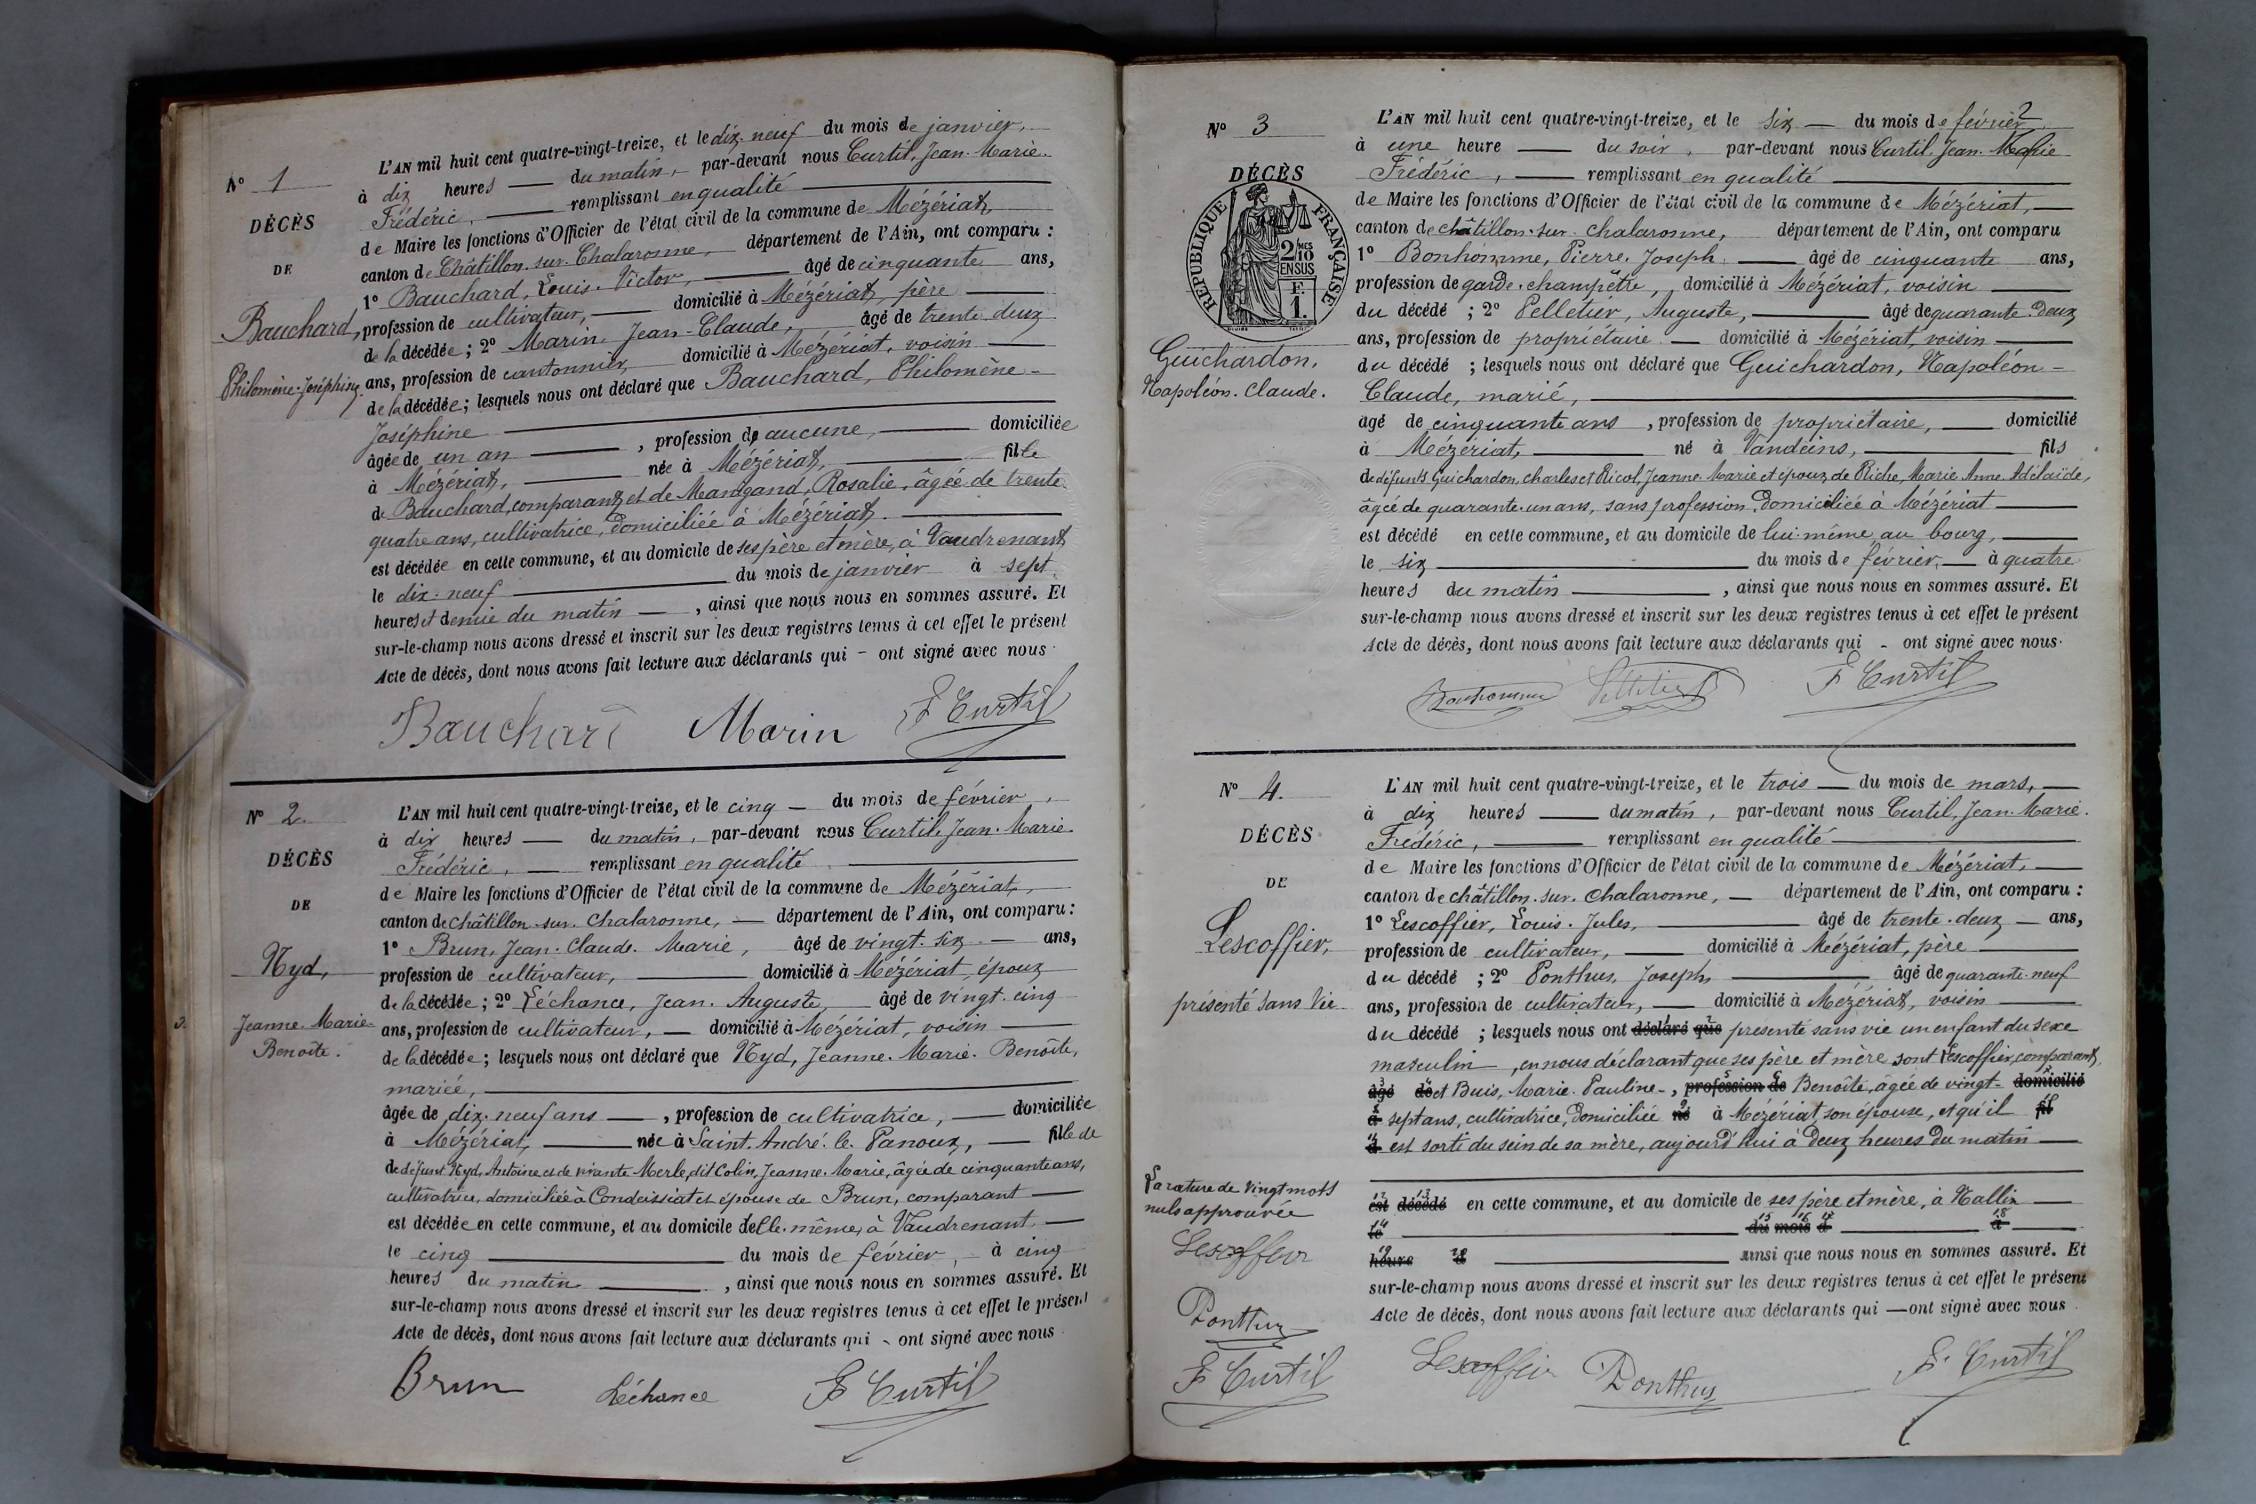 N° 1
DÉCÈS
DE
Bauchard,
Philomène-Joséphine.
L'AN mil huit cent quatre-vingt-treize, et le dix-neuf du mois de janvier,
à dix heures du matin, par-devant nous Curtil, Jean-Marie-
Frédéric, remplissant en qualité
de Maire les fonctions d'Officier de l'état civil de la commune de Mézériat,
canton de Châtillon-sur-Chalaronne, département de l'Ain, ont comparu :
1° Bauchard, Louis-Victor, âgé de cinquante ans,
profession de cultivateur, domicilié à Mézériat, père
de la décédée ; 2° Marin, Jean-Claude, âgé de trente-deux
ans, profession de cantonnier, domicilié à Mézériat, voisin
de la décédée ; lesquels nous ont déclaré que Bauchard, Philomène-
Joséphine
âgée de un an, profession de aucune, domiciliée
à Mézériat, née à Mézériat, fille
de Bauchard, comparant, et de Mangand, Rosalie, âgée de trente-
quatre ans, cultivatrice, domiciliée à Mézériat.
est décédée en cette commune, et au domicile de ses père et mère, à Vaudrenant
le dix-neuf du mois de janvier à sept
heures et demie du matin, ainsi que nous nous en sommes assuré. Et
sur-le-champ nous avons dressé et inscrit sur les deux registres tenus à cet effet le présent
Acte de décès, dont nous avons fait lecture aux déclarants qui - ont signé avec nous.
Bauchard Marin F Curtil
N° 2.
DÉCÈS
DE
Nyd,
Jeanne-Marie-
Benoîte.
L'AN mil huit cent quatre-vingt-treize, et le cinq du mois de février,
à dix heures du matin, par-devant nous Curtil, Jean-Marie-
Frédéric, remplissant en qualité
de Maire les fonctions d'Officier de l'état civil de la commune de Mézériat,
canton de Châtillon-sur-Chalaronne, département de l'Ain, ont comparu :
1° Brun, Jean-Claude-Marie, âgé de vingt-six ans,
profession de cultivateur, domicilié à Mézériat, époux
de la décédée ; 2° Léchance, Jean-Auguste, âgé de vingt-cinq
ans, profession de cultivateur, domicilié à Mézériat, voisin
de la décédée ; lesquels nous ont déclaré que Nyd, Jeanne-Marie-Benoîte,
mariée,
âgée de dix-neuf ans, profession de cultivatrice, domiciliée
à Mézériat, née à Saint-André-le-Panoux, fille de
de défunt Nyd, Antoine et de vivante Merle, dit Colin, Jeanne-Marie, âgée de cinquante ans,
cultivatrice, domiciliée à Condeissiat et épouse de Brun, comparant
est décédée en cette commune, et au domicile d'elle-même, à Vaudrenant,
le cinq du mois de février, à cinq
heures du matin, ainsi que nous nous en sommes assuré. Et
sur-le-champ nous avons dressé et inscrit sur les deux registres tenus à cet effet le présent
Acte de décès, dont nous avons fait lecture aux déclarants qui - ont signé avec nous
Brun Léchance F Curtil
2
N° 3
DÉCÈS
RÉPUBLIQUE FRANÇAISE
2/10 EN SUS
F. 1.
Guichardon,
Napoléon-Claude.
L'AN mil huit cent quatre-vingt-treize, et le six du mois de février,
à une heure du soir, par-devant nous Curtil, Jean-Marie-
Frédéric, remplissant en qualité
de Maire les fonctions d'Officier de l'état civil de la commune de Mézériat,
canton de châtillon-sur-chalaronne, département de l'Ain, ont comparu
1° Bonhomme, Pierre-Joseph âgé de cinquante ans,
profession de garde-champêtre, domicilié à Mézériat, voisin
du décédé ; 2° Pelletier, Auguste, âgé de quarante-deux
ans, profession de propriétaire domicilié à Mézériat, voisin
du décédé ; lesquels nous ont déclaré que Guichardon, Napoléon-
Claude, marié,
âgé de cinquante ans, profession de propriétaire, domicilié
à Mézériat, né à Vandeins, fils
de défunts Guichardon, charles et Ricol, Jeanne-Marie et époux de Riche, Marie-Anne-Adélaïde,
âgée de quarante-un ans, sans profession, domiciliée à Mézériat
est décédé en cette commune, et au domicile de lui-même, au bourg,
le six du mois de février, à quatre
heures du matin, ainsi que nous nous en sommes assuré. Et
sur-le-champ nous avons dressé et inscrit sur les deux registres tenus à cet effet le présent
Acte de décès, dont nous avons fait lecture aux déclarants qui - ont signé avec nous.
Bonhomme Pelletier F Curtil
N° 4.
DÉCÈS
DE
Lescoffier,
présenté sans vie
L'AN mil huit cent quatre-vingt-treize, et le trois du mois de mars,
à dix heures du matin, par-devant nous Curtil, Jean-Marie-
Frédéric, remplissant en qualité
de Maire les fonctions d'Officier de l'état civil de la commune de Mézériat,
canton de châtillon-sur-chalaronne, département de l'Ain, ont comparu :
1° Lescoffier, Louis-Jules, âgé de trente-deux ans,
profession de cultivateur, domicilié à Mézériat, père
du décédé ; 2° Ponthus, Joseph, âgé de quarante-neuf
ans, profession de cultivateur, domicilié à Mézériat, voisin
du décédé ; lesquels nous ont déclaré que présenté sans vie un enfant du sexe
masculin, en nous déclarant que ses père et mère sont Lescoffier, comparant,
âgé de et Buis, Marie-Pauline-, profession de Benoîte, âgée de vingt- domicilié
à sept ans, cultivatrice, domiciliée né à Mézériat, son épouse, et qu'il fil
d est sorti du sein de sa mère, aujourd'hui à deux heures du matin
est décédé en cette commune, et au domicile de ses père et mère, à
le du mois d à
heure d ainsi que nous nous en sommes assuré. Et
sur-le-champ nous avons dressé et inscrit sur les deux registres tenus à cet effet le présent
Acte de décès, dont nous avons fait lecture aux déclarants qui - ont signé avec nous
La rature de vingt mots
nuls approuvée
Lescoffier
Ponthus
F Curtil
Lescoffier Ponthus F. Curtil